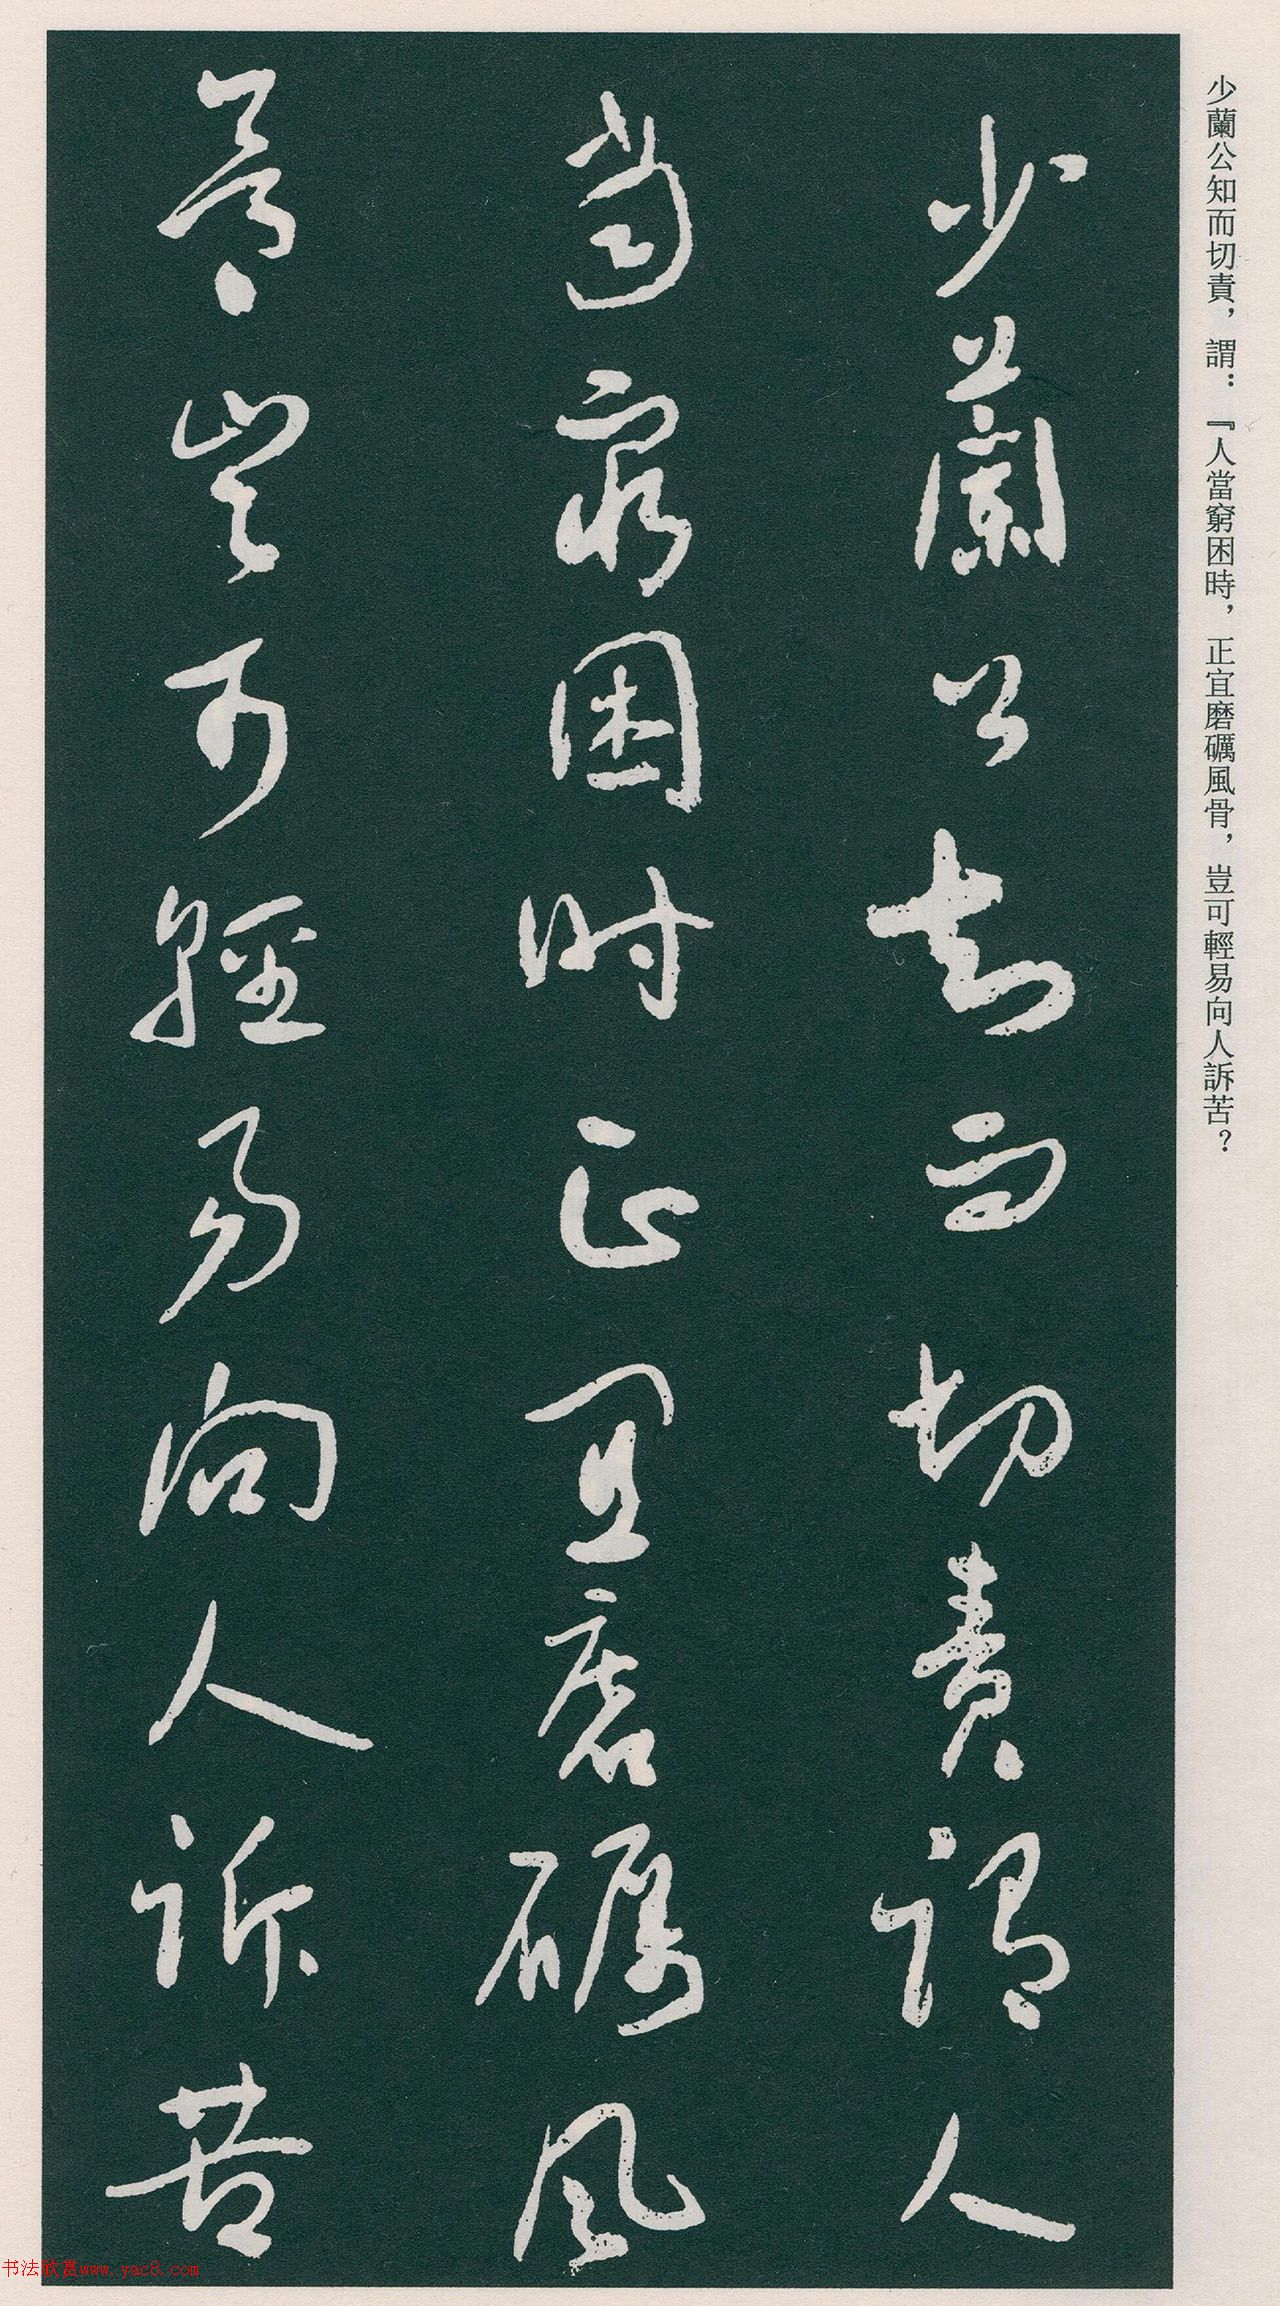 少蘭公知而切責，謂：『人當窮困時，正宜磨礪風骨，豈可輕易向人訴苦？
少蘭公知而切責謂人
當窮困时正宜磨礪風
骨豈可輕易向人訴苦
书法欣赏www.yac8.com